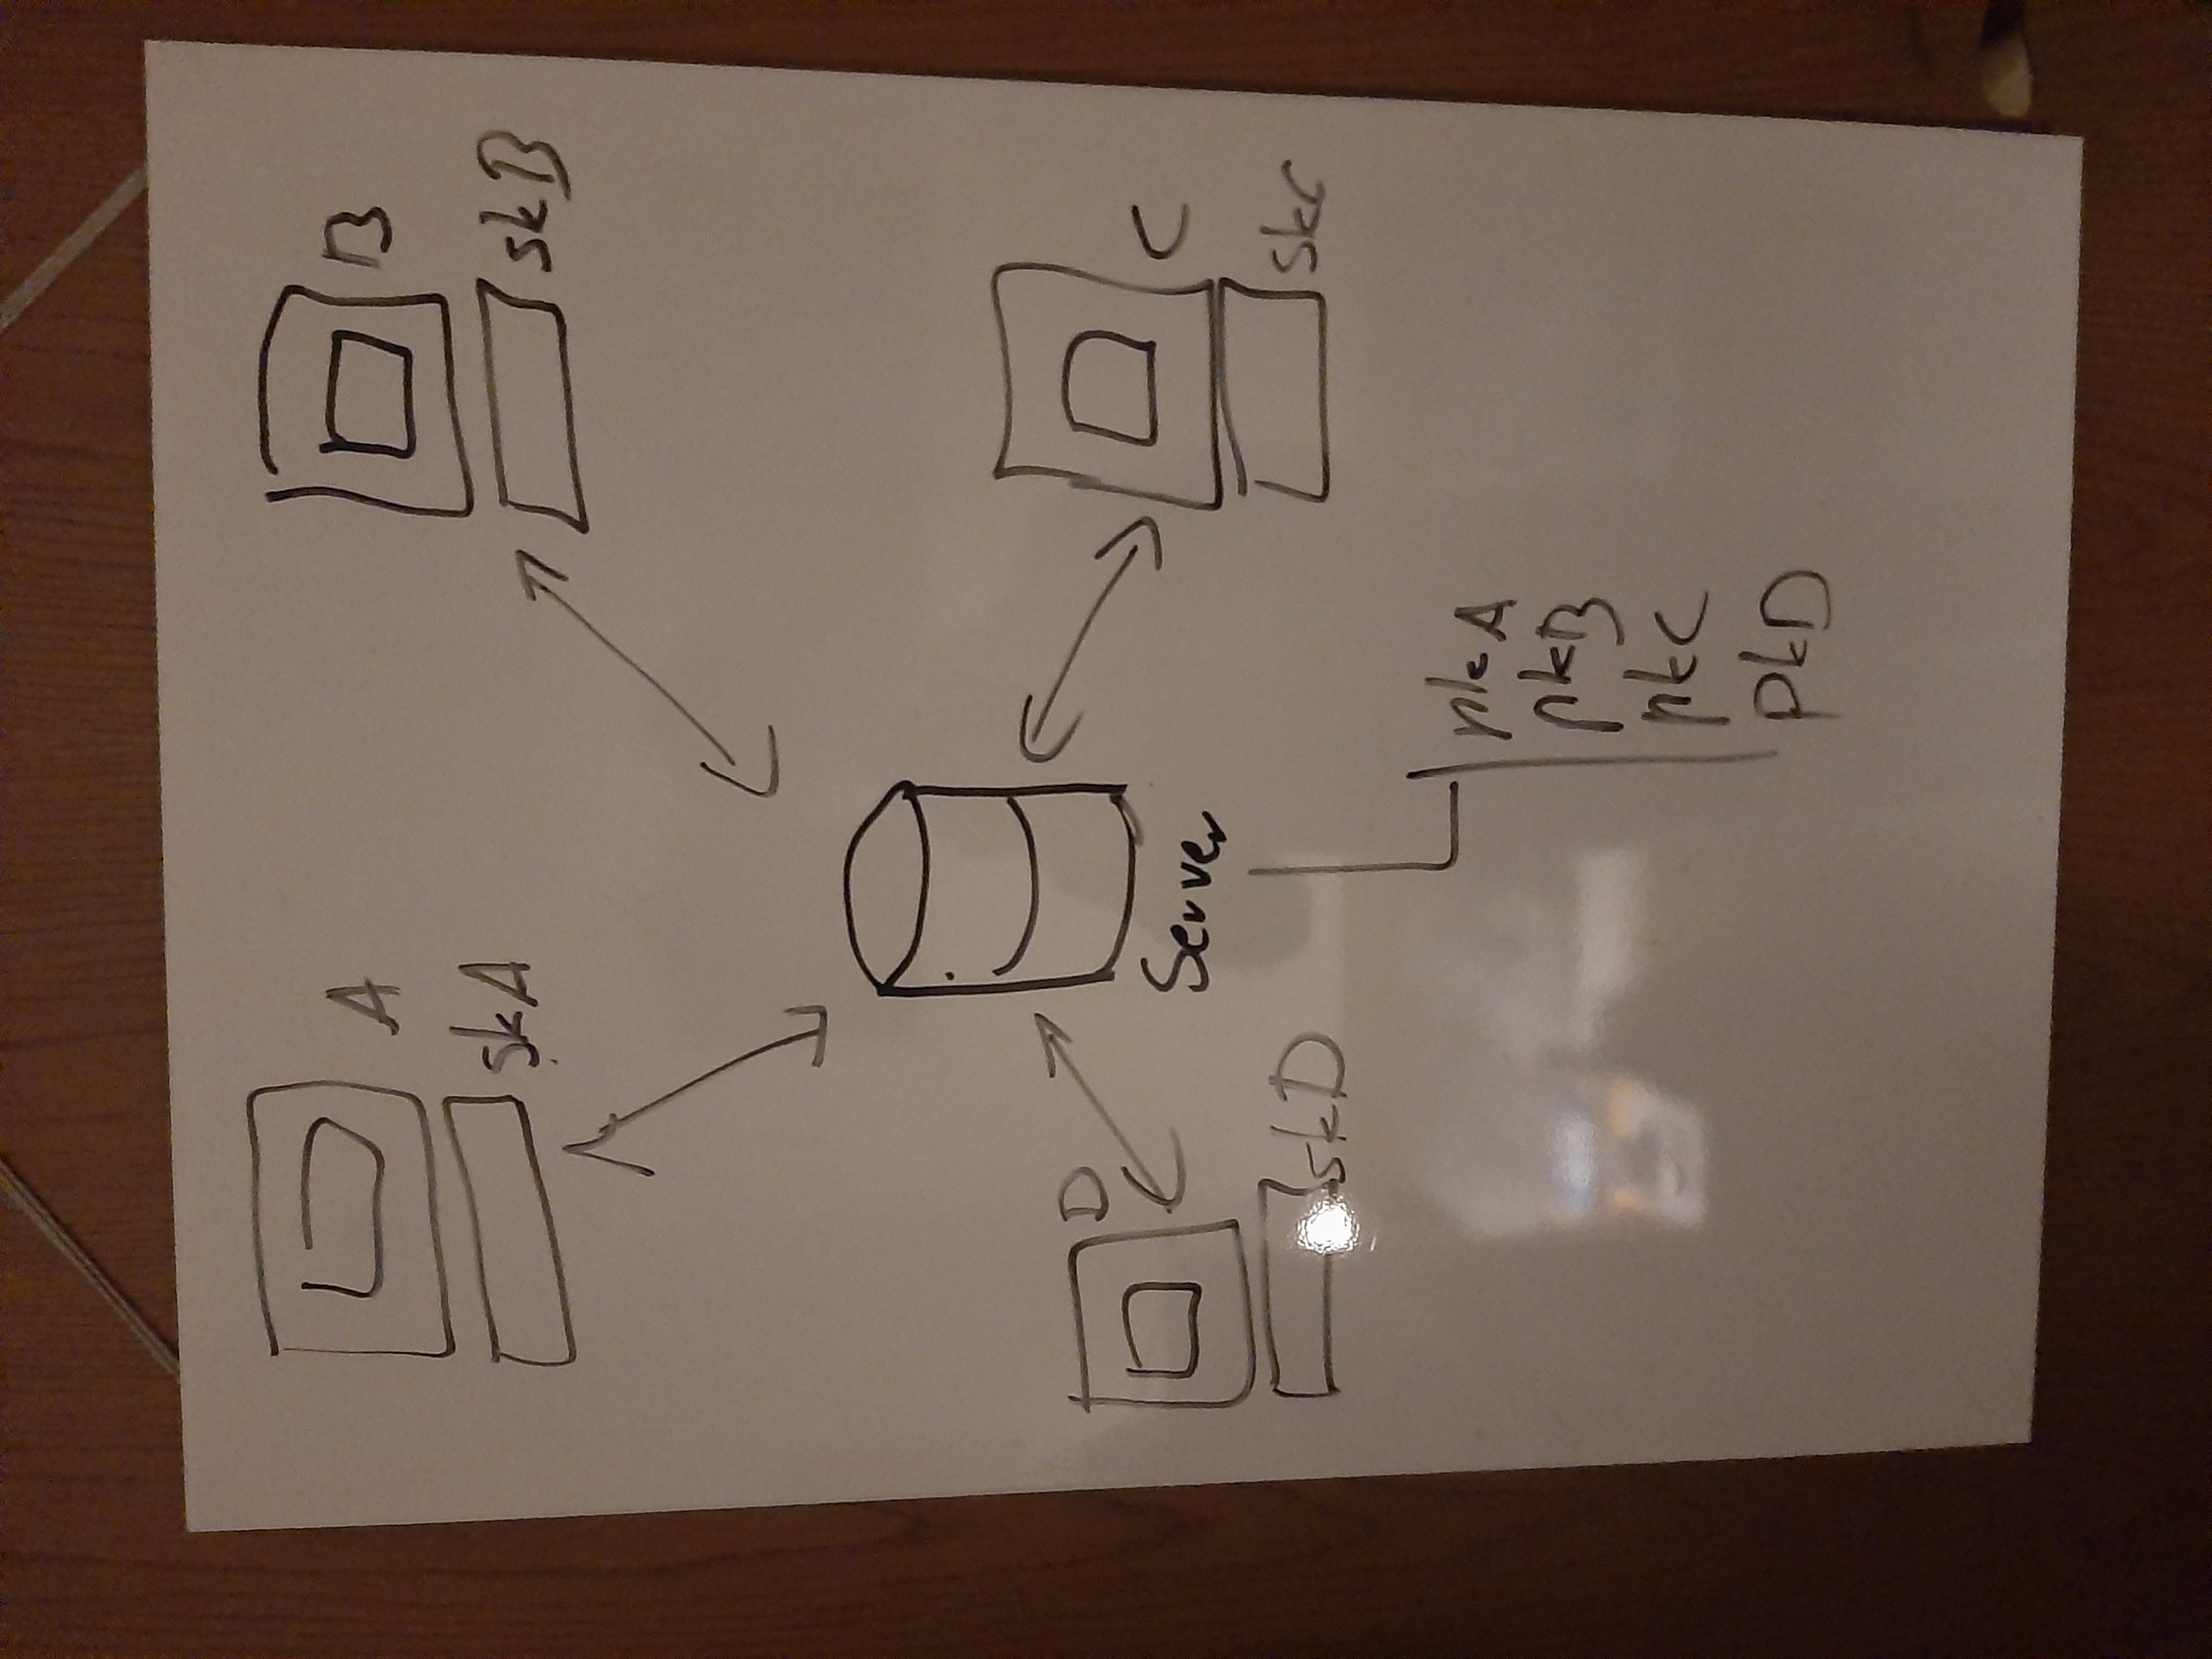 A
skA
B
skB
D
skD
Server
C
skC
pkA
pkB
pkC
pkD